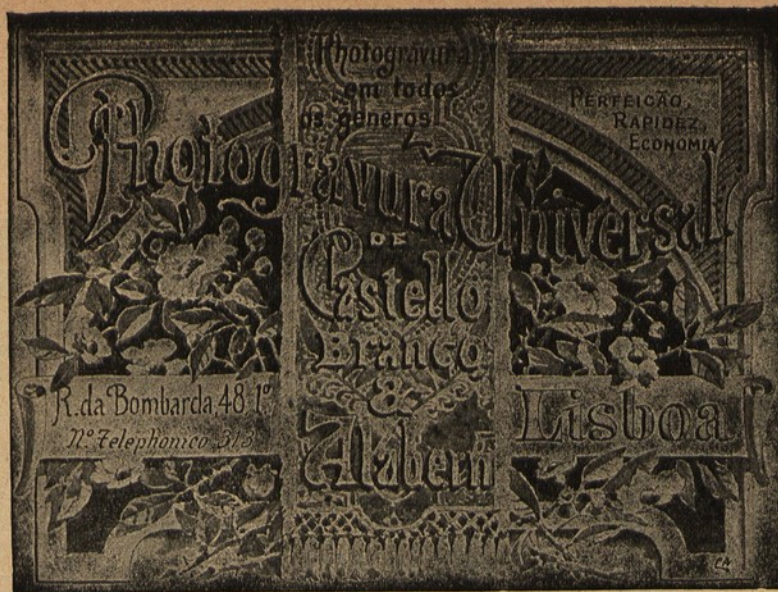 Photogravura
em todos
os generos
PERFEIÇÃO,
RAPIDEZ,
ECONOMIA
Photogravura Universal
DE
Castello
BRANCO
&
Alabern
R. da Bombarda, 48 1º
Nº Telephonico 313
Lisboa
CA